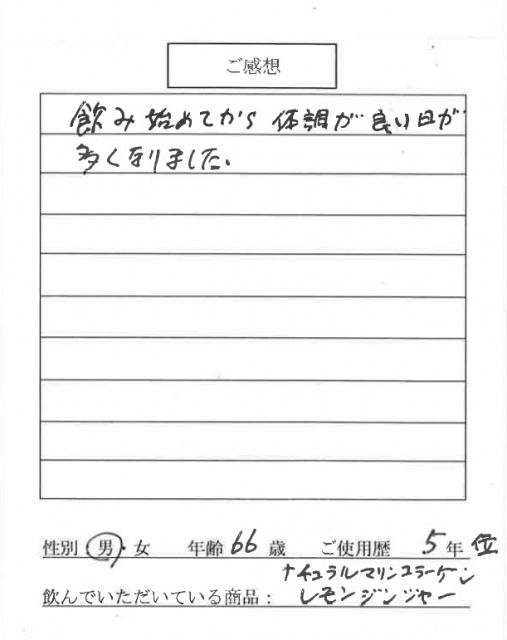 ご感想
飲み始めてから 体調が良い日が
多くなりました。
性別:男・女 年齢 66 歳 ご使用歴 5 年 位
ナチュラルマリンコラーゲン
飲んでいただいている商品: レモンジンジャー